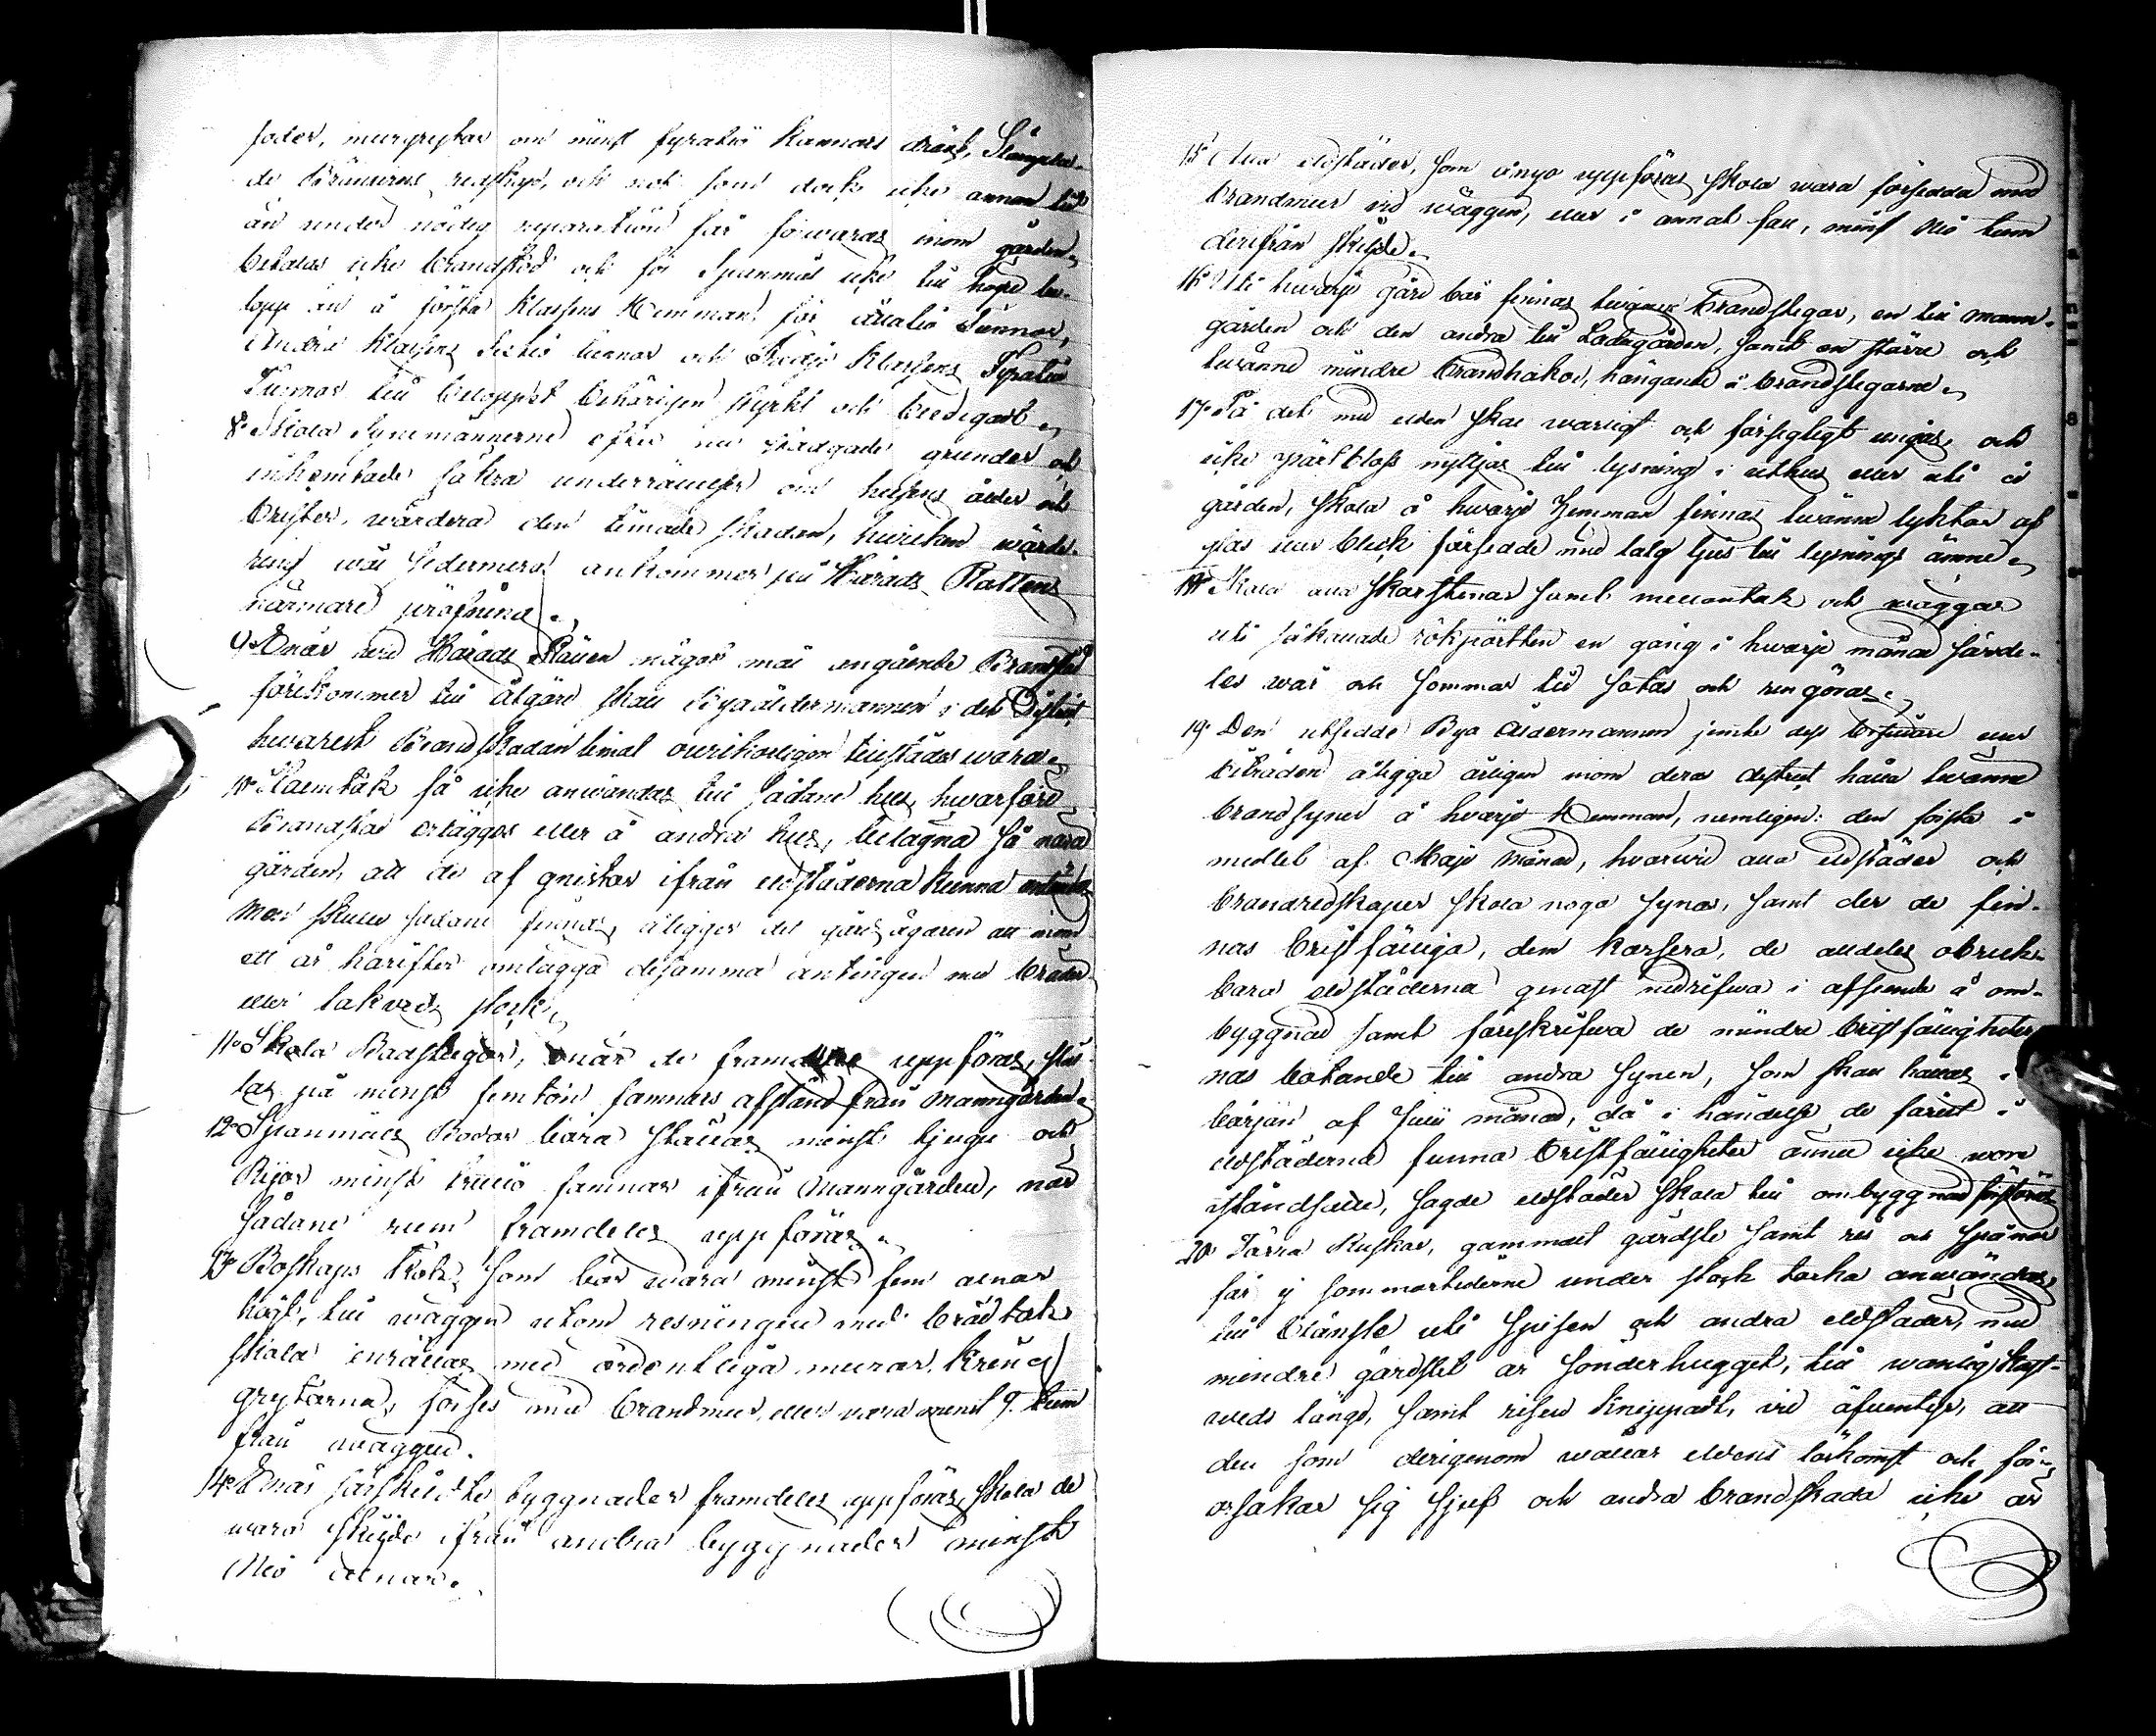 foder, murgrytor om minst fyratio kannors drägt,
de Bränneris redskap, och not som dock icke annan tid
än under nödig reparation får förwaras inom gården
betalas icke brandstod och för Spanmål icke till högre be-
lopp än å första Klassens Hemman för åttatio Tunnor,
Andra Klassens Sextio tunnor och Tredje Klassens Fyratio
Tunnor till beloppet behörigen styrkt och beedigadt
8o Skola Synemännerne efter nu stadgade grunder och
inhemtade säkra underrättelser om husens ålder och
brister, wärdera den timade skadan, hwilken wärde-
ring wid sedermera ankommer på Härads Rättens
närmare pröfning.
9o Enär wid Härads Rätten något mål angående Brandstod
förekommer till åtgärd skall Byaåldermannen i det District
hwarest Brandskadan timat ovilkorligen tillstädes wara
10o Halmtak få icke användas till sådane hus, hwarföre
Brandstod erlägges eller å andra hus, belägna så nära
gården, att de af gnistor ifrån eldstäderna kunna antändas
Men skulle sådane finnas, åligger det gårdsägaren att inom
ett år härefter omlägga desamma antingen med bräder
eller takveds stock
11o Skola Badstugor, enär de framdeles uppföras, stäl-
las på minst femton famnars afstånd från manngården
12o Spanmåls Bodar böra ställas minst tjugu och
Rijor minst trettio famnar ifrån Manngården, när
sådane rum framdeles uppföras.
13o Boskaps Kök, som bör wara minst fem alnar
högt, till wäggen utom resningen med brädtak
skola inrättas med ordentliga murar kring
grytorna, förses med brandmur, eller vara minst 9 tum
från wäggen.
14o Enär särskildte byggnader framdeles uppföras, skola de
wara skiljde ifrån andra byggnader minst
Nio alnar.
15o Alla eldstäder, som ånyo uppföras skola wara försedda med
brandmur wid wäggen, eller i annat fall, minst Nio tum
derifrån skiljde.
16o Uti hwarje gård bör finnas twänne brandstegar, en till mann-
gården och den andra till Ladugården, samt en större och
twänne mindre brandhakar, hängande å brandstegarne
17o På det med elden skall warligt och försigtigt umgås, och
icke pärtbloss nyttjas till lysning i uthus eller uti å
gården, skola å hwarje Hemman finnas twänne lyktor af
glas eller bleck försedde med talg ljus till lysnings ämne
18o Skola alla Skorstenar samt mellantak och wäggar
uti så kallade rökpörtten en gång i hwarje månad särde-
les wår och sommar tid sotas och rengöras.
19o Den utsedde Bya Åldermannen jemte dess eller
biträden åligga årligen inom deras district hålla twänne
brandsyner å hwarje Hemman, nemligen: den första i
medlet af Maji Månad, hwarwid alla eldstäder och
brandredskaper skola noga synas, samt der de fin-
nas bristfälliga, dem kassera, de alldeles obruk-
bara eldstäderna genast nedrifwa i afseende å om-
byggnad samt föreskrifwa de mindre bristfälligheter-
nas botande till andra synen, som skall hållas i
början af Juli månad, då i händelse de förut i
eldstäderna funna bristfälligheter ännu icke wore
iståndsatte, sagde eldstäder skola till ombyggnad förstöras
20o Torra Ruskor, gammalt gärdsle samt ris och spånor
får ej sommartiderne under stark torka användas,
till bränsle uti spisen och andra eldstäder, med
mindre gärdslet är sönderhugget, till wanlig kast-
weds längd, samt risen knippadt, vid äfventyr, att
den som derigenom wållar eldens löskomst och för-
orsakar sig sjelf och andra brandskada icke är